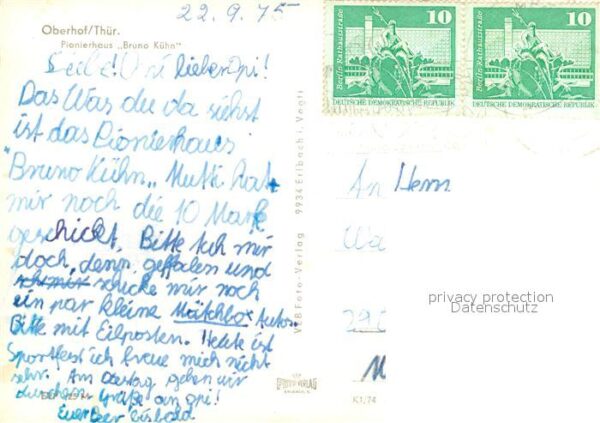 22.9.75
Oberhof/Thür.
Pionierhaus „Bruno Kühn“
Liebe! Omi lieber Opi!
Das Was du da siehst
ist das Pionierhaus
"Bruno Kühn„ Mutti hat
mir noch die 10 Mark
geschickt. Bitte
doch, denn gefallen und
schicke mir noch
ein par kleine Mätchbox Autos.
Bitte mit Eilposten. Heute ist
Sportfest ich freue mich nicht
sehr. Am gehen wir
duschen. Grüße an Opi!
Euer
VEB Foto-Verlag 9934 Erlbach i. Vogtl
FOTO VERLAG
K1/74
10
Berlin Rathausstraße
DEUTSCHE DEMOKRATISCHE REPUBLIK
10
Berlin Rathausstraße
DEUTSCHE DEMOKRATISCHE REPUBLIK
An Herrn
Wa
privacy protection
Datenschutz
M